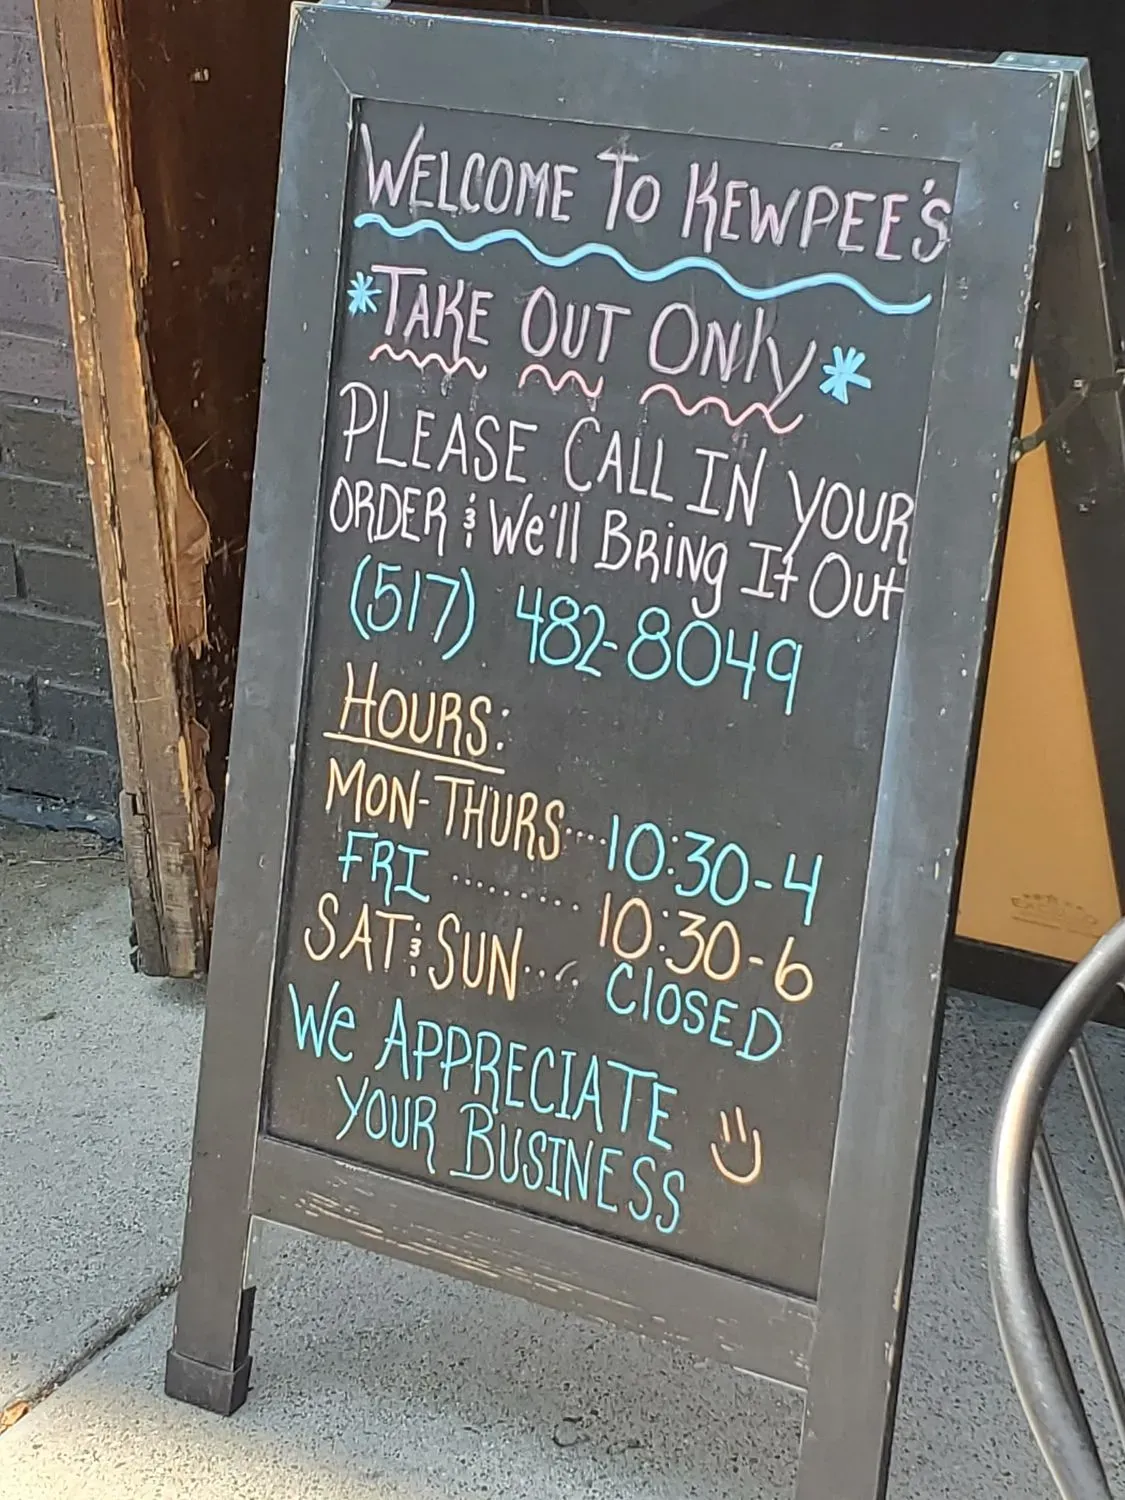 WELCOME TO KEWPEE'S
*TAKE OUT ONly*
PLEASE CALL IN YOUR
ORDER & We'll BRING It Out
(517) 482-8049
HOURS:
MON-THURS....10:30-4
FRI ........ 10:30-6
SAT & SUN.... ClOSED
We APPRECIATE
YOUR BUSINESS